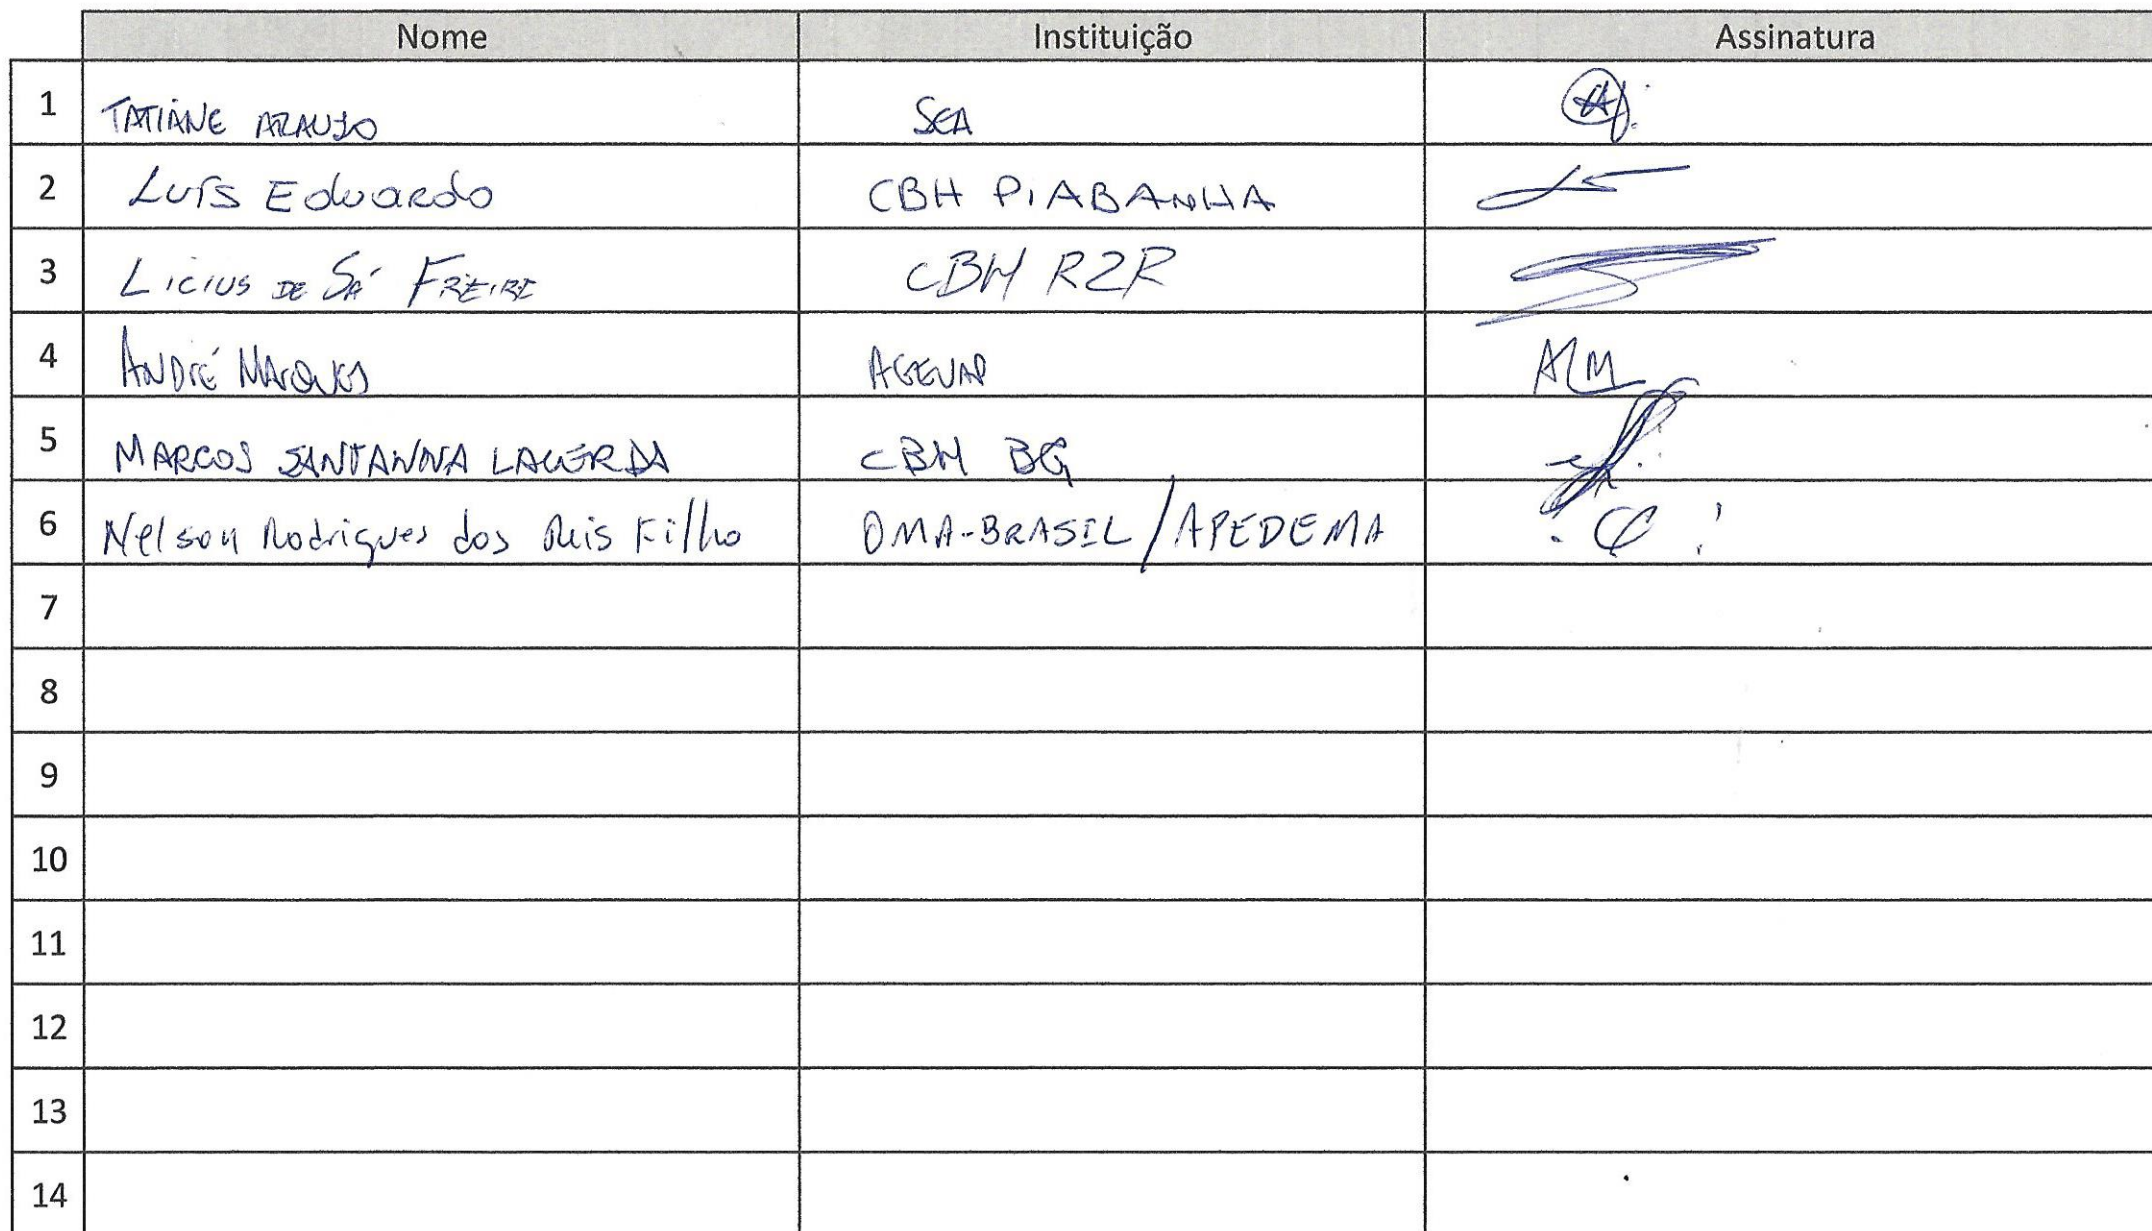 Nome Instituição Assinatura
1 TATIANE ARAUJO SEA
2 Luís Eduardo CBH PIABANHA
3 Licius DE SÁ FREIRE CBH R2R
4 ANDRÉ MARQUES AGEVAP ALM
5 MARCOS SANTANNA LACERDA CBH BG
6 Nelson Rodrigues dos Reis Filho OMA-BRASIL/APEDEMA
7
8
9
10
11
12
13
14